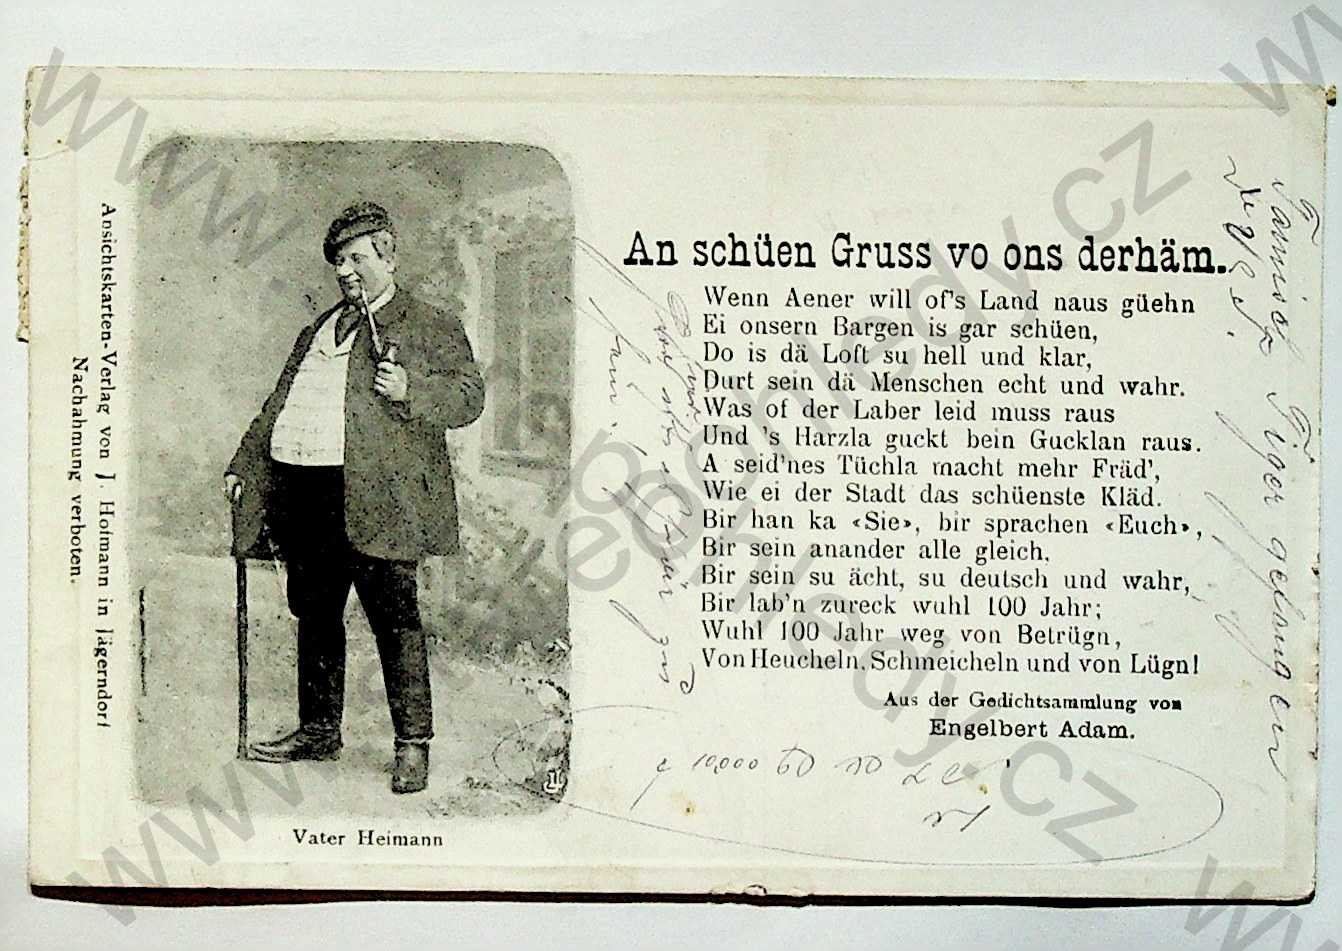 An schüen Gruss vo ons derhäm.
Wenn Aener will of's Land naus güehn
Ei onsern Bargen is gar schüen,
Do is dä Loft su hell und klar,
Durt sein dä Menschen echt und wahr.
Was of der Laber leid muss raus
Und 's Harzla guckt bein Gucklan raus.
A seid'nes Tüchla macht mehr Fräd',
Wie ei der Stadt das schüenste Kläd.
Bir han ka «Sie», bir sprachen «Euch»,
Bir sein anander alle gleich.
Bir sein su ächt, su deutsch und wahr,
Bir lab'n zureck wuhl 100 Jahr;
Wuhl 100 Jahr weg von Betrügn,
Von Heucheln, Schmeicheln und von Lügn!
Aus der Gedichtsammlung von
Engelbert Adam.
Vater Heimann
Ansichtskarten-Verlag von J. Hofmann in Jägerndorf
Nachahmung verboten.
10,000
www.pohledy.cz